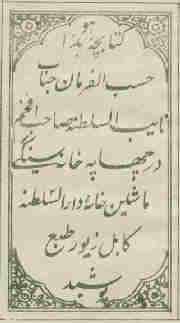 کتابچه هذا
حسب الفرمان جناب
نایب السلطنه صاحب افخم
در چهاپه خانه سنگی
ماشین خانه دار السلطنه
کابل زیور طبع
پوشید